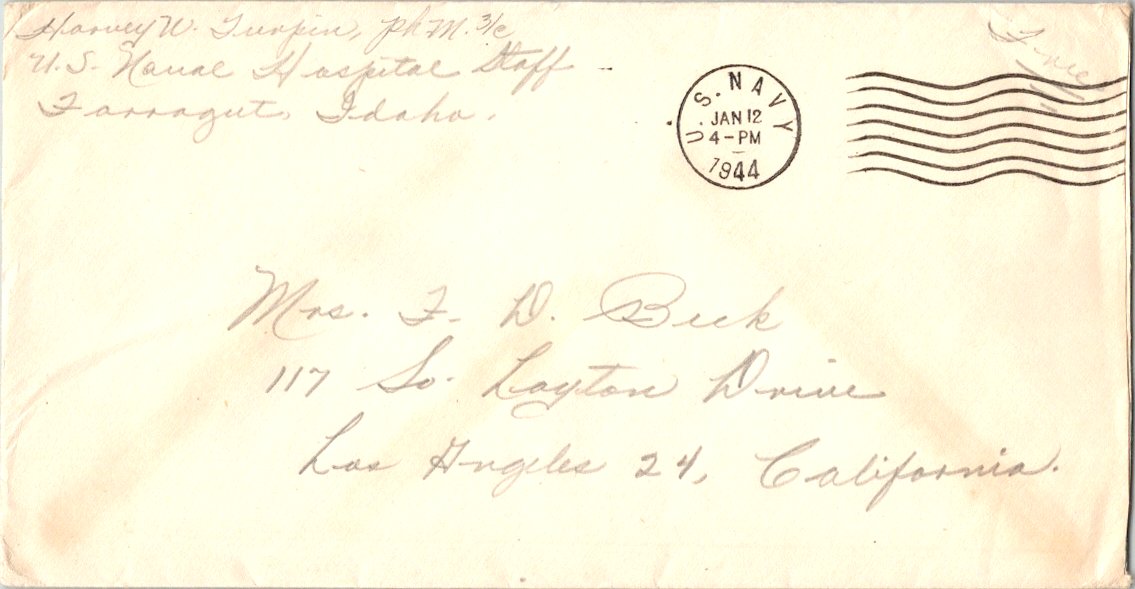 Harvey W. Turpin, PhM. 3/c
U.S. Naval Hospital Staff
Farragut, Idaho.
Free
U.S. NAVY
JAN 12
4-PM
1944
Mrs. F. D. Beck
117 So. Layton Drive
Los Angeles 24, California.